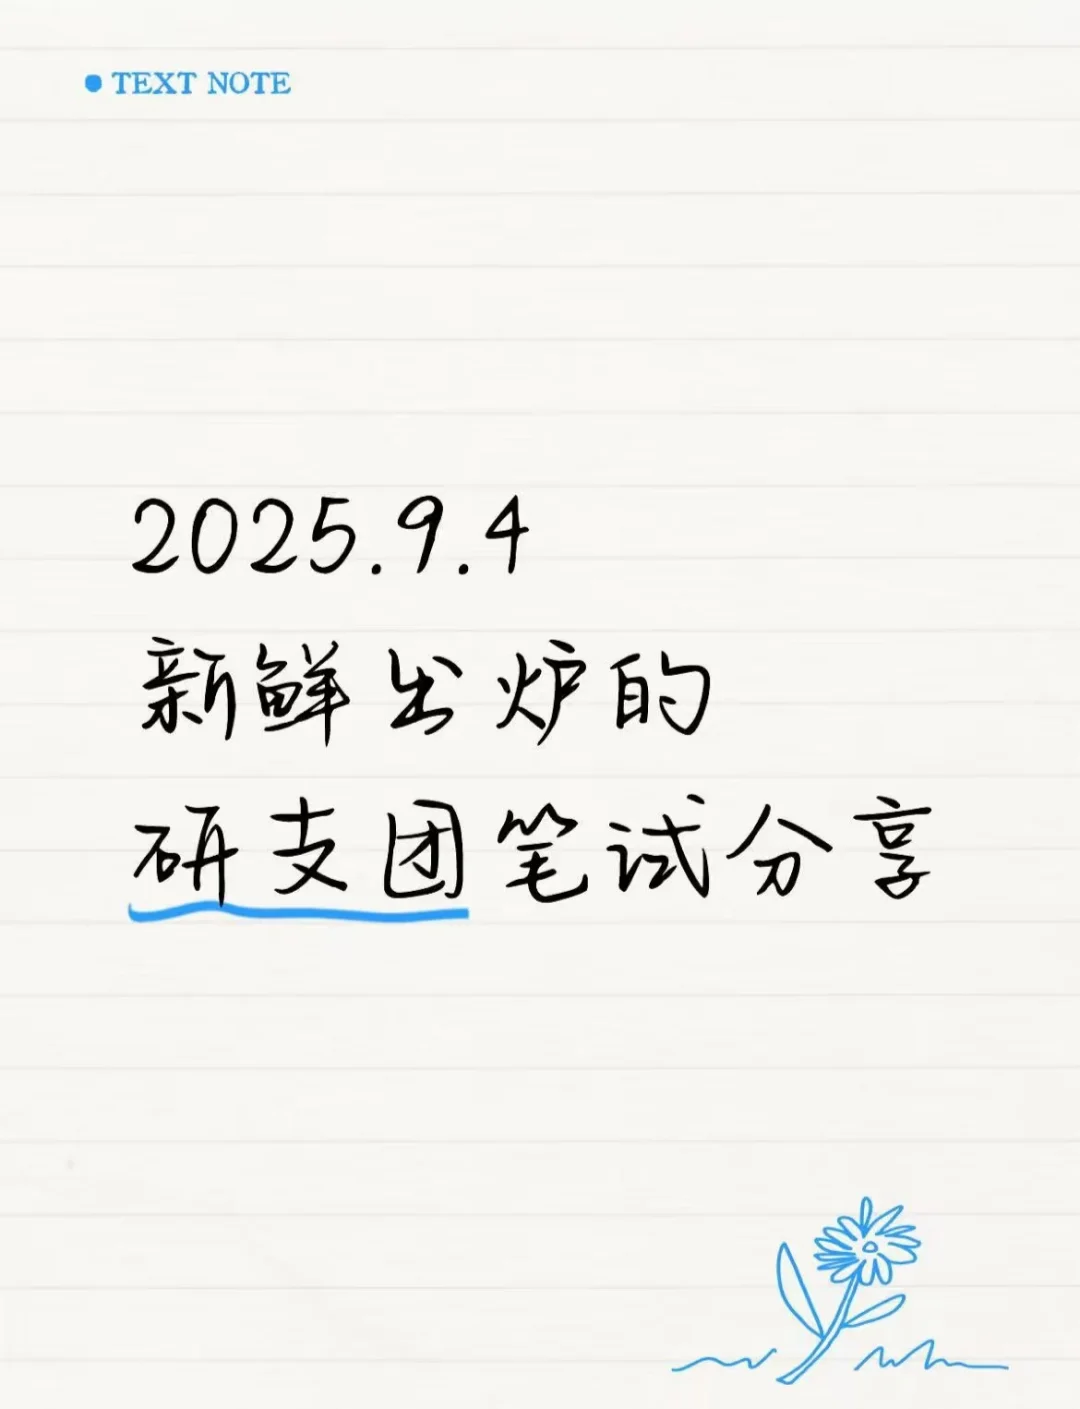 TEXT NOTE
2025.9.4
新鲜出炉的
研支团笔试分享